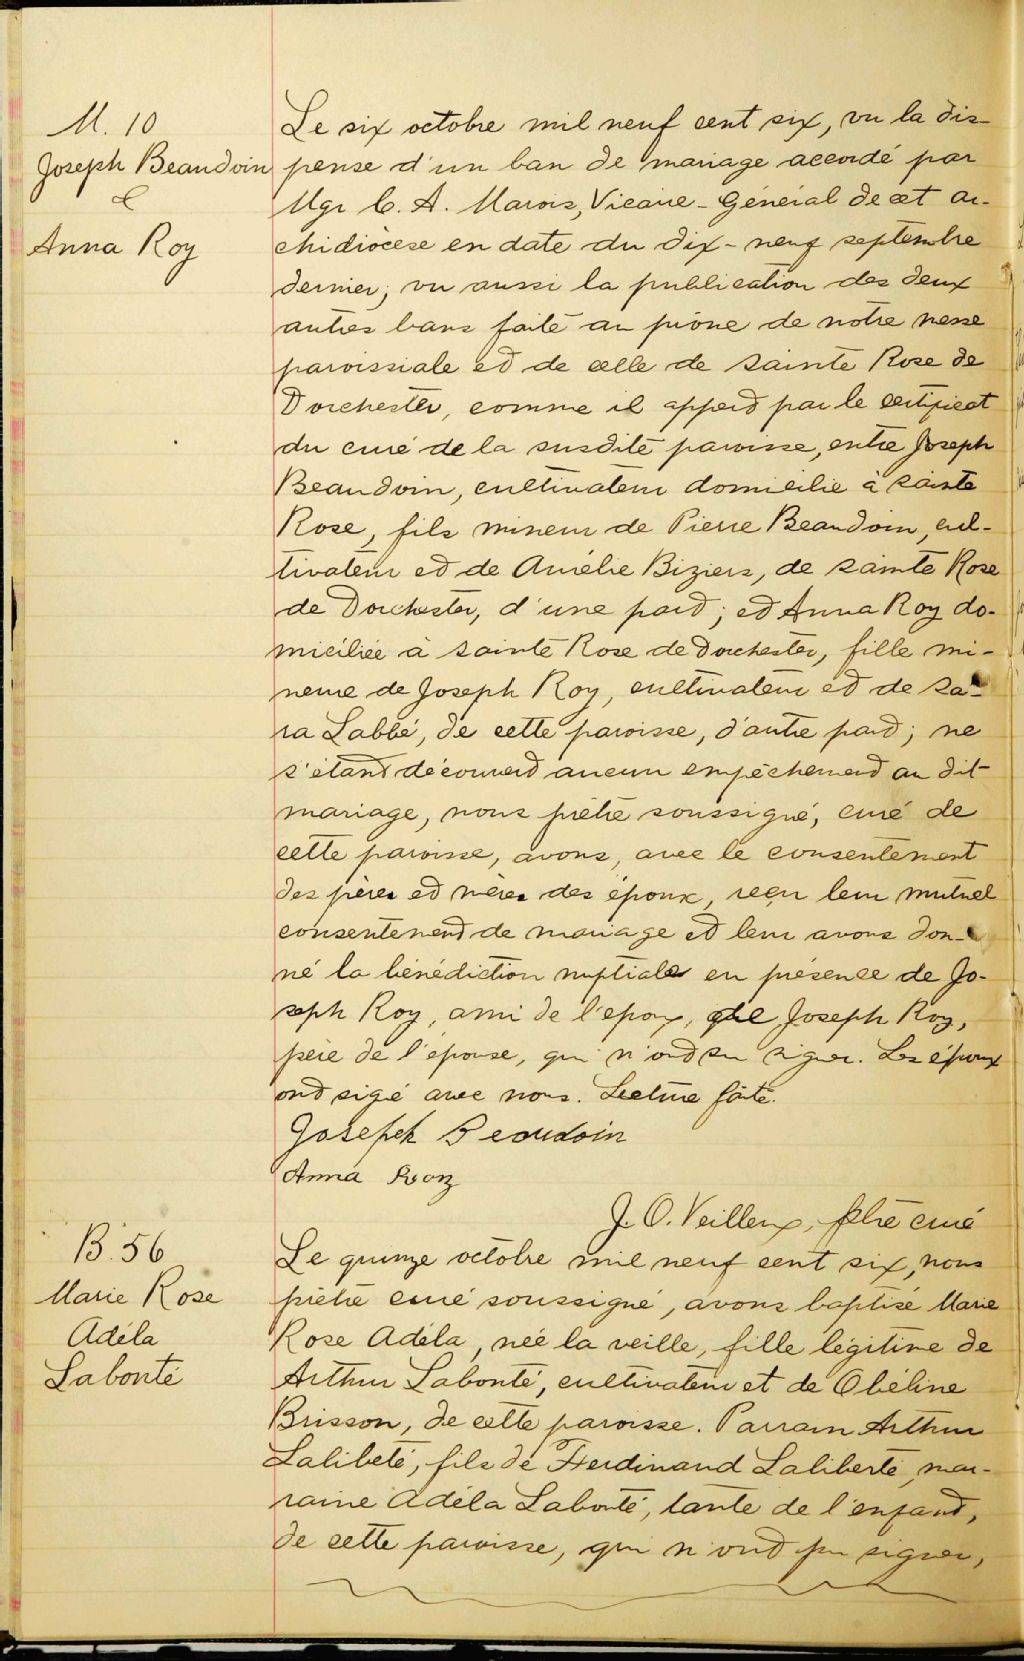 M. 10
Joseph Beaudoin
&
Anna Roy
Le six octobre mil neuf cent six, vu la dis-
pense d'un ban de mariage accordé par
Mgr C. A. Marois, Vicaire-Général de cet ar-
chidiocèse en date du dix-neuf septembre
dernier; vu aussi la publication des deux
autres bans faite au prône de notre messe
paroissiale et de celle de Sainte Rose de
Dorchester, comme il appert par le certificat
du curé de la susdite paroisse, entre Joseph
Beaudoin, cultivateur domicilié à Sainte
Rose, fils mineur de Pierre Beaudoin, cul-
tivateur et de Aurélie Biziers, de Sainte Rose
de Dorchester, d'une part; et Anna Roy do-
miciliée à Sainte Rose de Dorchester, fille mi-
neure de Joseph Roy, cultivateur et de Sa-
ra Labbé, de cette paroisse, d'autre part; ne
s'étant découvert aucun empêchement au dit
mariage, nous prêtre soussigné, curé de
cette paroisse, avons, avec le consentement
des pères et mères des époux, reçu leur mutuel
consentement de mariage et leur avons don-
né la bénédiction nuptiale en présence de Jo-
seph Roy, ami de l'époux, Joseph Roy,
père de l'épouse, qui n'ont su signer. Les époux
ont sigé avec nous. Lecture faite.
Joseph Beaudoin
Anna
J. O. Veilleux, ptre curé
B. 56
Marie Rose
Adéla
Labonté
Le quinze octobre mil neuf cent six, nous
prêtre curé soussigné, avons baptisé Marie
Rose Adéla, née la veille, fille légitime de
Arthur Labonté, cultivateur et de Obéline
Brisson, de cette paroisse. Parrain Arthur
Labibeté, fils de Ferdinand Laliberté, mar-
raine Adéla Labonté, tante de l'enfant,
de cette paroisse, qui n'ont pu signer,